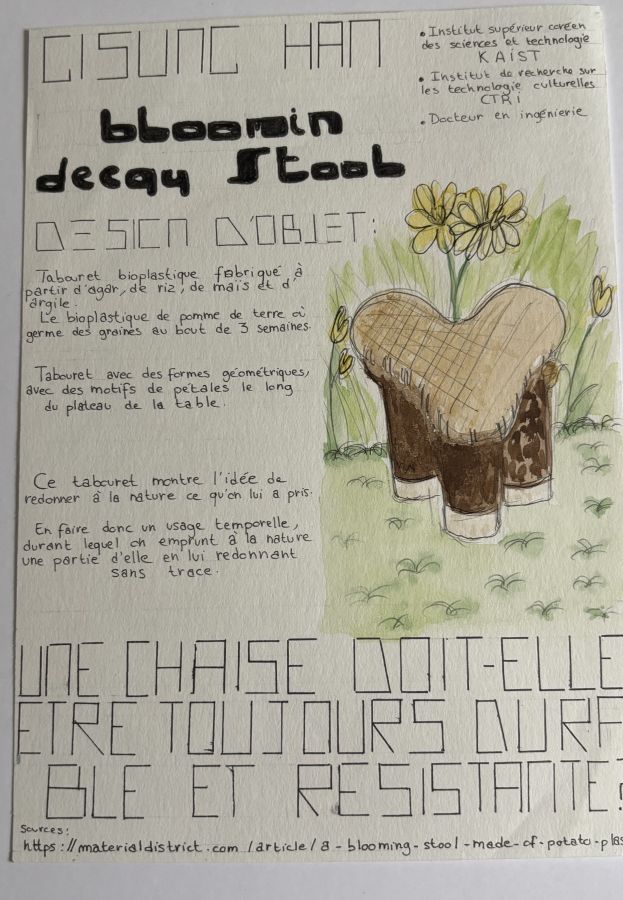 GISUNG HAN
• Institut supérieur coréen
des sciences et technologie
KAIST
• Institut de recherche sur
les technologie culturelles
CTRI
• Docteur en ingénierie
bloomin
decay Stool
DESIGN D'OBJET:
Tabouret bioplastique fabriqué à
partir d'agar, de riz, de maïs et d'
argile.
Le bioplastique de pomme de terre a
germe des graines au bout de 3 semaines.
Tabouret avec des formes géométriques,
avec des motifs de pétales le long
du plateau de la table.
Ce tabouret montre l'idée de
redonner à la nature ce qu'on lui a pris.
En faire donc un usage temporelle,
durant lequel on emprunt à la nature
une partie d'elle en lui redonnant
sans trace.
UNE CHAISE DOIT-ELLE
ETRE TOUJOURS DURA
BLE ET RESISTANTE?
Sources:
https://materialdistrict.com/article/a-blooming-stool-made-of-potato-plas